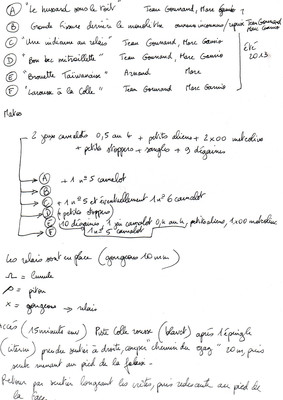 A "Le husard sous le toit" Jean Gounand, Marc Gamio ?
B Grande fissure derrière le monolithe ouvreurs inconnus, équipée Jean Gounand Marc Gamio
C "Une indienne au relais" Jean Gounand, Marc Gamio
D "Bon bec mitraillette" Jean Gounand, Marc Gamio
E "Brouette Taïwanaise" Armand Marc
F "Larousse à la Colle" Jean Gounand Marc Gamio
Eté 2013
Matos
2 jeux camelots 0,5 au 4 + petits aliens + 2x00 metolius
+ petits stoppers + sangles + 9 dégaines
A + 1 n°5 camelot
B
C + 1 n°5 et éventuellement 1 n°6 camelot
D (+ petits stoppers)
E 10 dégaines 1 jeu camelot 0,4 au 4, petits aliens, 1x00 metolius
F 1 n°5 camelot
Les relais sont en place (goujons 10 mm)
= lunule
= piton
x = goujons → relais
Accès (15 minute env) Piste Colle rousse (Blavet) après l'épingle
(citerne) prendre sentier à droite, couper "chemin du" 20 m, puis
sente menant au pied de la falaise.
Retour par sentier longeant les crêtes, puis redescente au pied de
la face.